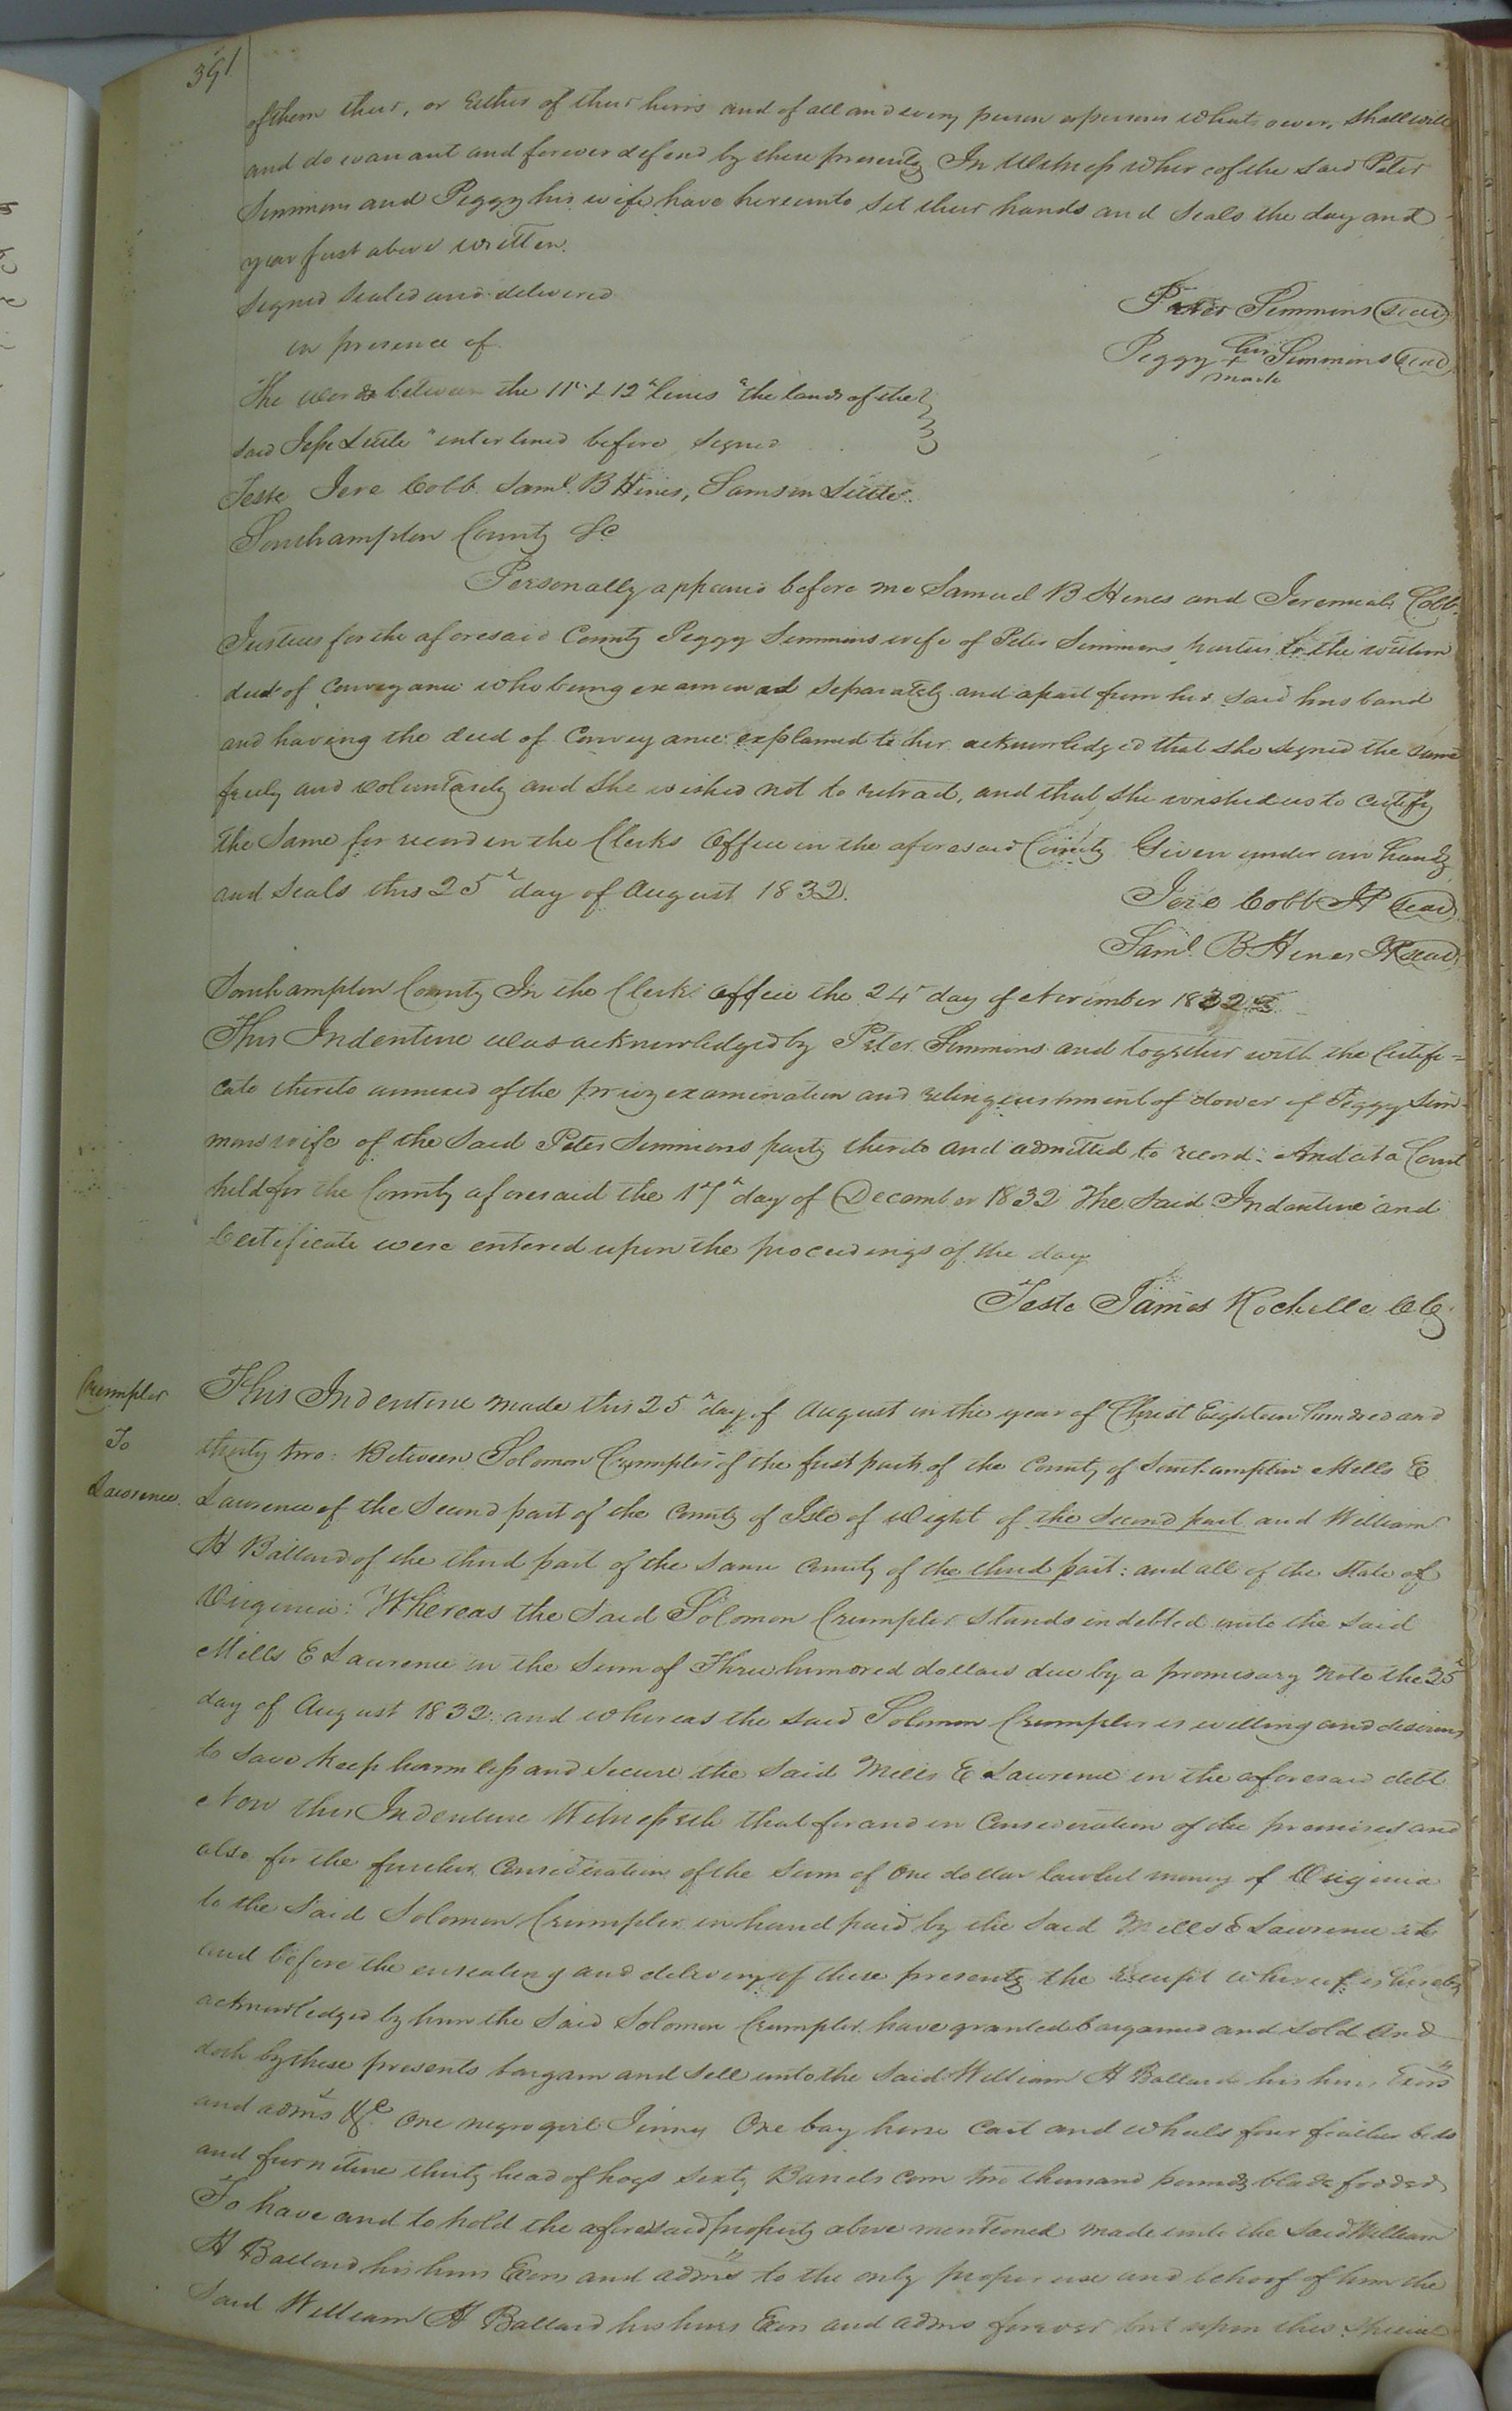 391
of them their, or Either of their heirs and of all and every person or persons whatsoever, shall will
and do warrant and forever defend by these presents In Witness whereof the said Peter
Simmons and Peggy his wife have hereunto set their hands and seals the day and
year first above written.
Signed sealed and delivered
in presence of
Peter Simmons (seal)
Peggy her + mark Simmons (seal)
The words between the 11th & 12th lines "the lands of the
said Jesse Little" interlined before signed
Teste Jere Cobb. Saml. B Hines, Samson Little.
Southampton County Sc
Personally appeared before me Samuel B Hines and Jeremiah Cobb
Justices for the aforesaid County Peggy Simmons wife of Peter Simmons parties to the within
deed of Conveyance who being examined separately and apart from her said husband
and having the deed of Conveyance explained to her acknowledged that she signed the same
freely and voluntarily and she wished not to retract, and that she wished us to certify
the Same for record in the Clerks Office in the aforesaid County Given under our hands
and seals this 25th day of August 1832.
Jere Cobb JP (seal)
Saml. B Hines JP (seal)
Southampton County In the Clerks office the 24th day of November 1832
This Indenture was acknowledged by Peter Simmons and together with the Certifi=
cate thereto annexed of the privy examination and relinquishment of dower of Peggy Sim-
mons wife of the Said Peter Simmons party thereto and admitted to record. And at a Court
held for the County aforesaid the 17th day of December 1832 The Said Indenture and
Certificate were entered upon the proceedings of the day
Teste James Rochelle CC
Crumpler
To
Lawrence.
This Indenture made this 25th day of August in the year of Christ Eighteen hundred and
thirty two: Between Solomon Crumpler of the first part of the County of Southampton Mills E
Lawrence of the Second part of the County of Isle of Wight of the second part and William
H Ballard of the third part of the same County of the third part: and all of the State of
Virginia: Whereas the Said Solomon Crumpler stands indebted unto the said
Mills E Lawrence in the sum of Three hundred dollars due by a promisary note the 25th
day of August 1832: and whereas the said Solomon Crumpler is willing and desirous
to save keep harmless and secure the said Mills E Lawrence in the aforesaid debt
Now this Indenture Witnesseth that for and in Consideration of the premises and
also for the further Consideration of the sum of One dollar lawful money of Virginia
to the Said Solomon Crumpler in hand paid by the said Mills E Lawrence at
and before the ensealing and delivery of these presents the receipt whereof is hereby
acknowledged by him the Said Solomon Crumpler have granted bargained and sold and
doth by these presents bargain and sell unto the said William H Ballard his heirs Exors
and adms &c. One negro girl Jinny One bay horse Cart and wheels four feather beds
and furniture thirty head of hogs Sixty Barrels Corn two thousand pounds blade fodder
To have and to hold the aforesaid property above mentioned made unto the said William
H Ballard his heirs Exors and adms to the only proper use and behoof of him the
Said William H Ballard his heirs Exors and adms forever but upon this special